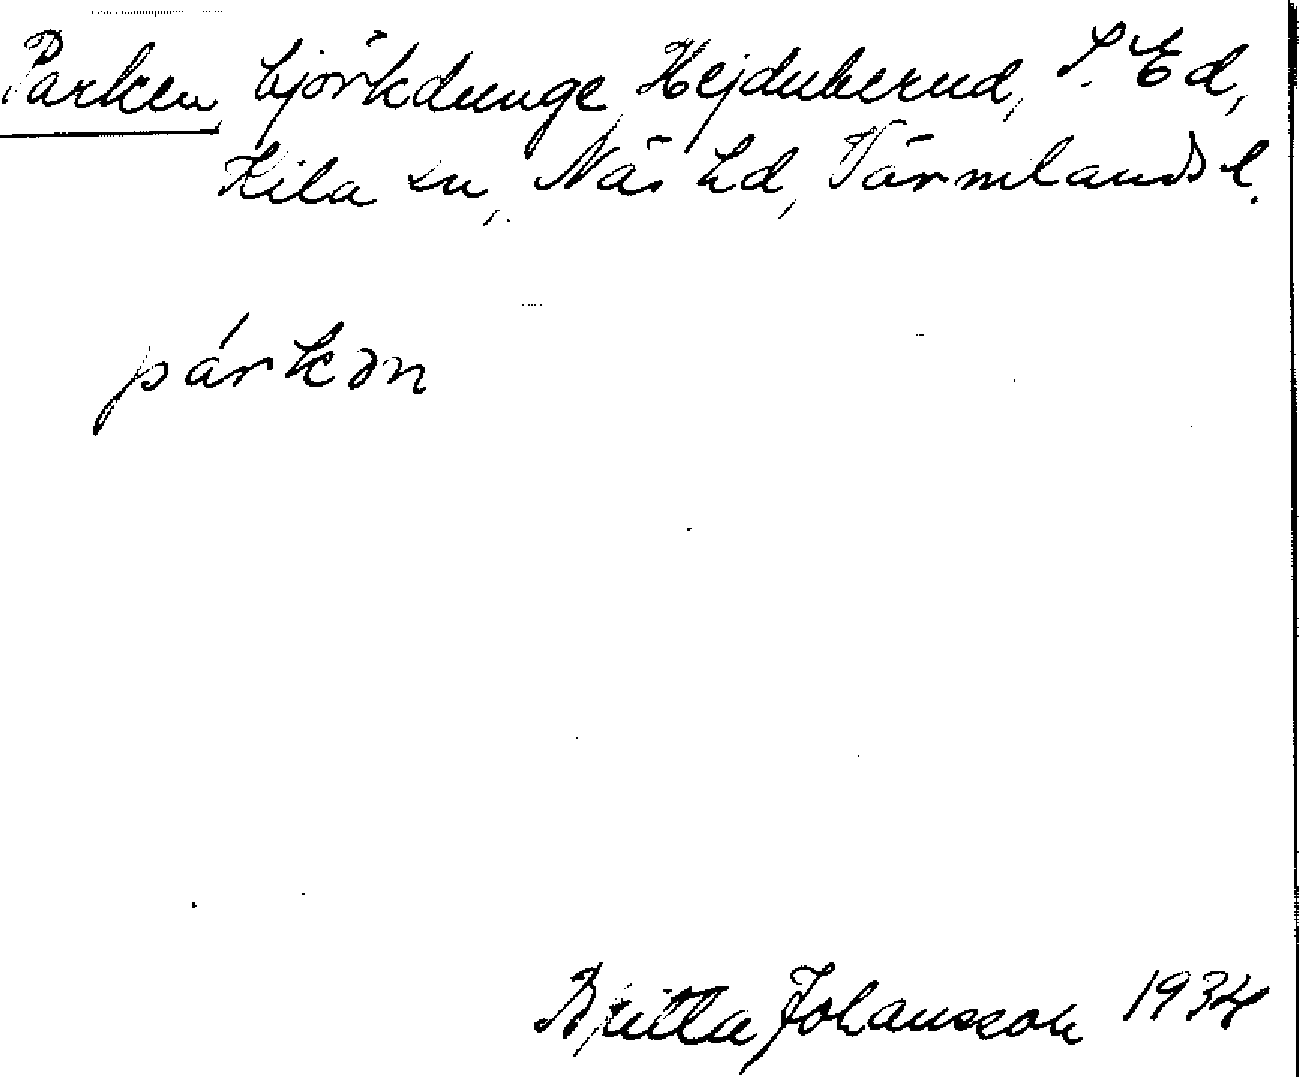 Parken, björkdunge, Hejduberud, S. Ed,
Kila sn, Näs hd, Värmlands l.
párkən
Britta Johansson 1934